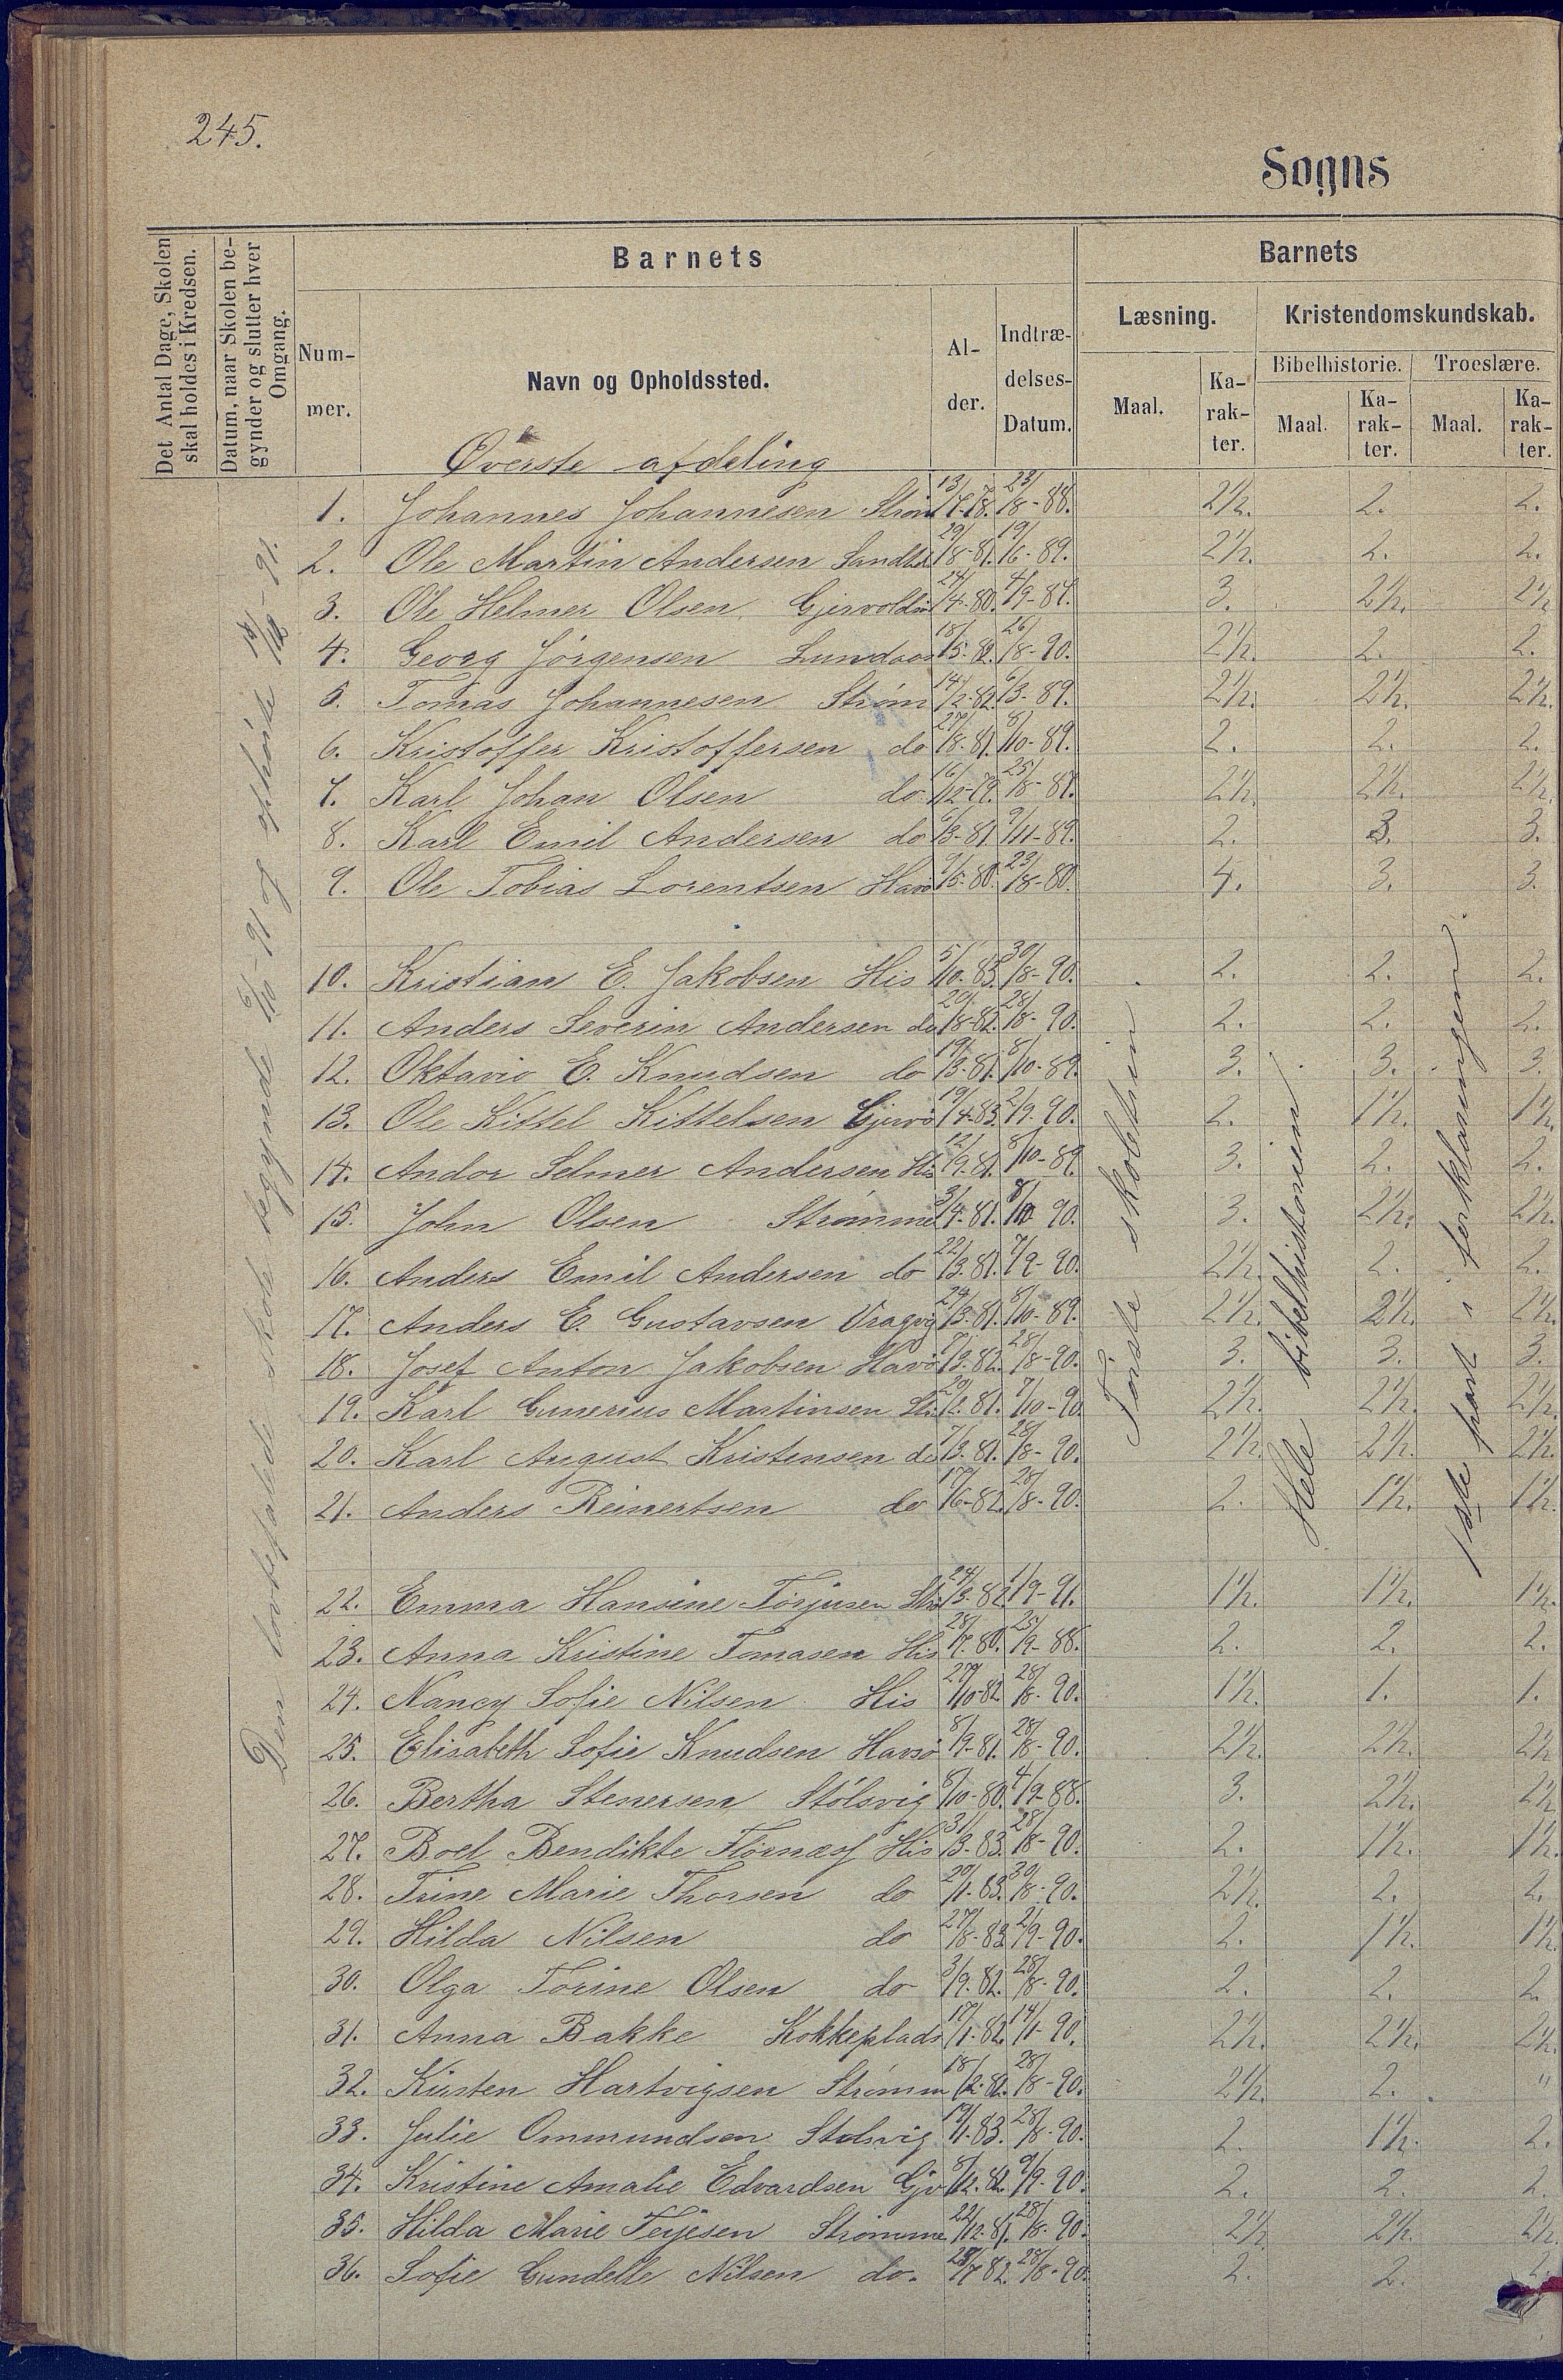 245.
Sogns
Det Antal Dage, Skolen skal holdes i Kredsen.
Datum, naar Skolen begynder og slutter hver Omgang.
Barnets
Nummer.
Navn og Opholdssted.
Alder.
Indtrædelses-Datum.
Barnets
Læsning.
Kristendomskundskab.
Bibelhistorie.
Troeslære.
Maal.
Karakter.
Maal.
Karakter.
Maal.
Karakter.
Øverste afdeling
1. Johannes Johannesen Strøm 13/7-78. 23/8-88. 2½. 2. 2.
2. Ole Martin Andersen 29/8-81. 19/6-89. 2½. 2. 2.
3. Ole Helmer Olsen 24/4-80. 4/9-87. 3. 2½. 2½
4. Georg Jörgensen Lundaas 18/5-82. 26/8-90. 2½. 2. 2.
5. Tomas Johannesen Strøm 14/2-82. 6/3-89. 2½. 2½. 2½.
6. Kristoffer Kristoffersen do 27/8-81. 8/10-89. 2. 2. 2.
7. Karl Johan Olsen do 16/12-79. 25/8-87. 2½. 2½. 2½.
8. Karl Emil Andersen do 6/3-81. 9/11-89. 2. 3. 3.
9. Ole Tobias Lorentsen Havsö 9/5-80. 23/8-80. 4. 3. 3.
10. Kristian E. Jakobsen His 5/10-83. 30/8-90. 2. 2. 2.
11. Anders Severin Andersen do 20/8-82. 28/8-90. 2. 2. 2.
12. Oktavio E. Knudsen do 19/3-81. 8/10-89. 3. 3. 3.
13. Ole Kittel Kittelsen Gjervo 19/4-83. 2/9-90. 2. 1½. 1½.
14. Andor Selmer Andersen His 12/9-81. 8/10-89. 3. 2. 2.
15. John Olsen Strømme 3/4-81. 8/10-90. 3. 2½. 2½.
16. Anders Emil Andersen do 22/3-81. 7/9-90. 2½. 2. 2.
17. Anders E. Gustavsen Vragvig 24/3-81. 8/10-89. 2½. 2½. 2½.
18. Josef Anton Jakobsen Havö 7/3-82. 28/8-90. 3. 3. 3.
19. Karl Gunerius Martinsen 20/1-81. 7/10-90. 2½. 2½. 2½.
20. Karl August Kristensen do 7/3-81. 28/8-90. 2½. 2½. 2½.
21. Anders Reinertsen do 17/6-82. 28/8-90. 2. 1½. 1½.
22. Emma Hansine Törjusen 24/3-82. 1/9-91. 1½. 1½. 1½.
23. Anna Kristine Tomasen His 28/7-80. 25/9-88. 2. 2. 2.
24. Nancy Sofie Nilsen His 27/10-82. 28/8-90. 1½. 1. 1.
25. Elisabeth Sofie Knudsen Havsö 8/9-81. 28/8-90. 2½. 2½. 2½
26. Bertha Stenersen Stölsvig 8/10-80. 4/9-88. 3. 2½. 2½
27. Boel Bendikte Flörnæss His 31/3-83. 28/8-90. 2. 1½. 1½.
28. Trine Marie Thorsen do 20/1-83. 30/8-90. 2½. 2. 2.
29. Hilda Nilsen do 27/8-83. 2/9-90. 2. 1½. 1½.
30. Olga Torine Olsen do 3/9-82. 28/8-90. 2. 2. 2.
31. Anna Bakke Kokkeplads 17/1-82. 14/1-90. 2½. 2½. 2½.
32. Kirsten Hartvigsen Strømm 18/2-82. 28/8-90. 2½. 2. "
33. Julie Ommundsen Stølsvig 19/1-83. 28/8-90. 2. 1½. 2.
34. Kristine Amalie Edvardsen Gjv 8/12-82. 9/9-90. 2. 2. 2.
35. Hilda Marie Terjesen Strømme 22/12-81. 28/8-90. 2½. 2½. 2½.
36. Sofie Gundelle Nilsen do. 28/7-82. 28/8-90. 2. 2. 2.
Den lovbefalede skole begynde 6/10-91 og ophörte
Förste skoletrin
Hele bibelhistorien
1ste part i forklaringen